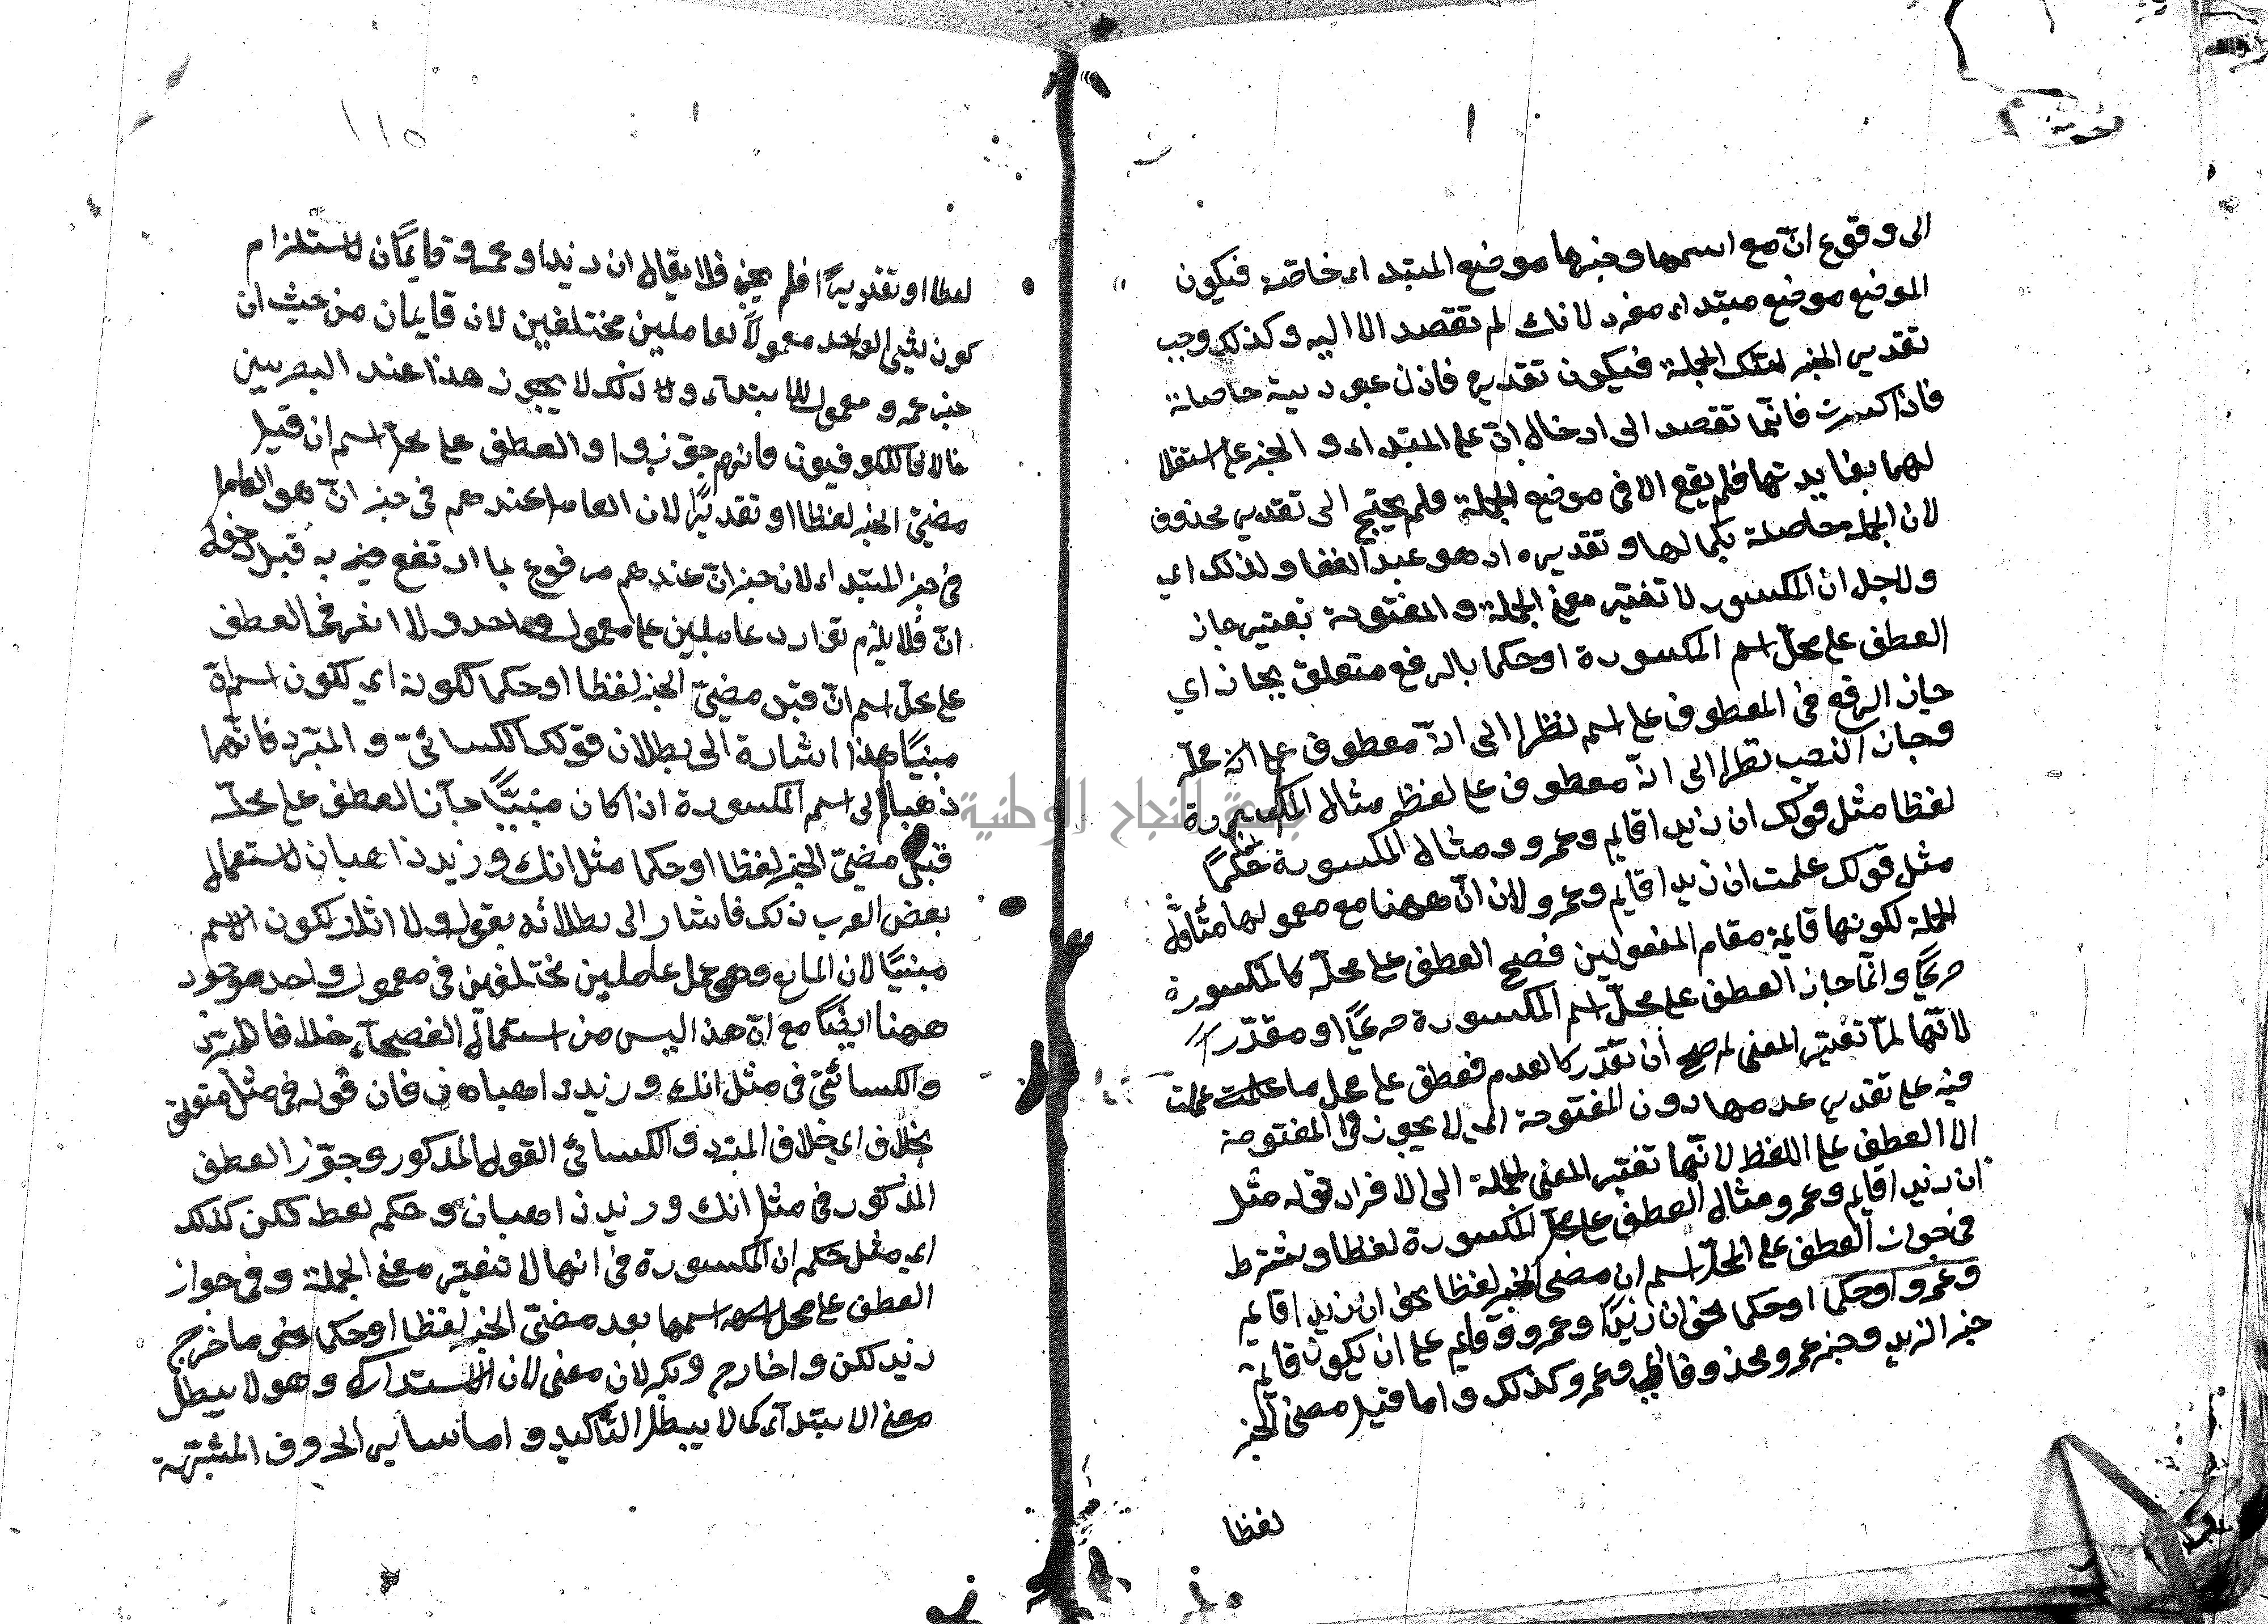 الى وقوع انّ مع اسمها وخبرها موضع المبتداء خاصّة فيكون
الموضع موضع مبتداء مفرد لانك لم تقصد الا اليه وكذلك وجب
تقدير الخبر لتلك الجملة فيكون تقديره فاذا عبوديته حاصلة
فاذا كسرت فانّما تقصد الى ادخال انّ على المبتداء والخبر على استقلا
لهما بفايدتها فلم يقع الا فى موضع الجملة فلم يحتج الى تقدير محذوف
لان الجملة حاصلة بكمالها وتقديره اذ هو عبد القفا ولذلك اى
ولاجل ان المكسور لا تغيّر معنى الجملة والمفتوحة تغيّر جاز
العطف على محلّ اسم المكسورة او حكما بالرفع متعلق بجاز اى
جاز الرفع فى المعطوف على اسم نظرا الى انّه معطوف على انه محلّه
وجاز النصب نظرا الى انّه معطوف على لفظه مثال المكسورة
لفظا مثل قولك ان زيدا قايم وعمرو ومثال المكسورة حكمًا
مثل قولك علمت ان زيدا قايم وعمرو لان انّ ههنا مع معمولها
الجملة لكونها قايمة مقام المفعولين فصح العطف على محلّه كالمكسورة
صريحًا وانّما جاز العطف على محلّ اسم المكسورة صريحًا او مقدّرا
لانّها لمّا تغيّر المعنى لم صح أن تقدّر كالعدم فعطف على محل ما علمت عملت
فيه على تقدير عدمها دون المفتوحة اى لا يجوز فى المفتوحة
الا العطف على اللفظ لانّها تغيّر المعنى الجملة الى الافراد قوله مثل
ان زيدا قايم وعمرو ومثال العطف على محلّ المكسورة لفظا ويشترط
فى جواز العطف على المحلّ اسم ان مضى الخبر لفظا نحو ان زيدا قايم
وعمرو او حكما او حكما نحو ان زيدًا وعمرو وقايم على ان يكون قايم
خبر الزيد وخبر عمرو محذوفا اى وعمرو كذلك واما قبل مضى الخبر
لفظا
١١٥
لفظا او تقديرًا فلم يجز فلا يقال ان زيدا وعمرو قايمان لاستلزام
كون لشيئ الواحد معمولاً لعاملين مختلفين لان قايمان من حيث ان
خبر عمرو معمول للابتداء ولذلك لا يجوز هذا عند البصريين
خلافا للكوفيون فانهم جوّزوا العطف على محلّ اسم ان قبل
مضيّ الخبر لفظا او تقديرًا لان العامل عندهم فى خبر انّ هو العامل
فى خبر المبتداء لان خبر انّ عندهم مرفوع بما ارتفع خبر به قبل دخول
انّ فلا يلزم توارد عاملين على معمول واحد ولا اثر فى العطف
على محلّ اسم انّ قبل مضيّ الخبر لفظا او حكما لكونه اى لكون اسم انّ
مبنيًا هذا اشارة الى بطلان قولك الكسائىّ والمبّرد فانّهما
ذهبا الى اسم المكسورة اذا كان مبنيًّا جاز العطف على محلّه
قبل مضيّ الخبر لفظا او حكما مثل انك وزيد ذاهبان لاستعمال
بعض العرب ذلك فاشار الى بطلانه بقوله ولا اثار لكون الاسم
مبنيًا لان المانع وهو عمل عاملين مختلفين فى معمول واحد موجود
ههنا ايضًا مع انّ هذا ليس من استعمال الفصحآء خلافا للمبرّد
والكسائىّ فى مثل انك وزيد ذاهبان فان قوله فى مثل متعلق
بخلاف اى خلاف المبرد والكسائى القول المذكور وجوّز العطف
المذكور فى مثل انك وزيد ذاهبان وحكم لفظ لكن كذلك
اى مثل حكم ان المكسورة فى انها لا تغيّر معنى الجملة وفى جواز
العطف على محل اسمها بعد مضىّ الخبر لفظا او حكما نحو ما خرج
زيد لكن واخارج وبكر لان معنى لان الاستدراك وهو لا يبطل
معنى الابتدآء كما لا يبطل التّاكيد واما ساير الحروف المشبّهة
جامعة النجاح الوطنية